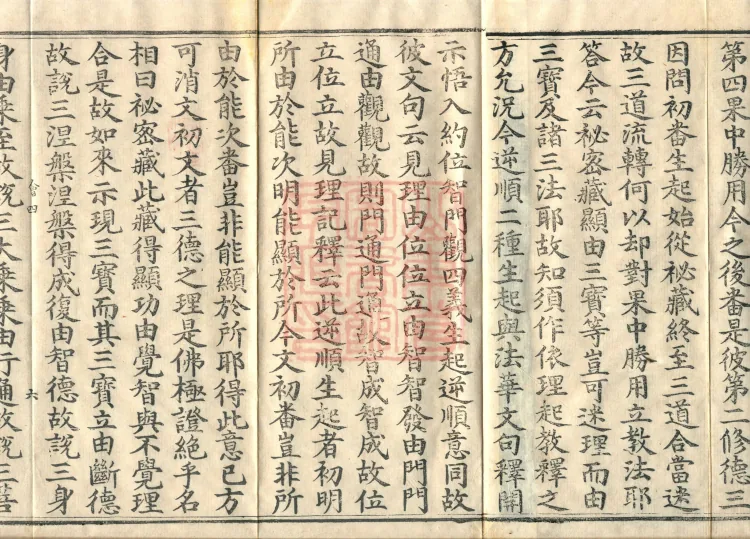 第四果中勝用今之後番是彼第二修德三
因問初番生起始從祕藏終至三道合當逆
故三道流轉何以却對果中勝用立教法耶
答今云祕密藏顯由三寶等豈可迷理而由
三寶及諸三法耶故知須作依理起教釋之
方允況今逆順二種生起與法華文句釋開
示悟入約位智門觀四義生起逆順意同故
彼文句云見理由位位立由智智發由門門
通由觀觀故則門通門通故智成智成故位
立位立故見理記釋云此逆順生起者初明
所由於能次明能顯於所今文初番豈非所
由於能次番豈非能顯於所耶得此意已方
可消文初文者三德之理是佛極證絕乎名
相曰祕密藏此藏得顯功由覺智與不覺理
合是故如來示現三寶而其三寶立由斷德
故說三涅槃涅槃得成復由智德故說三身
身由乘至故說三大乘乘由行通故說三菩
六